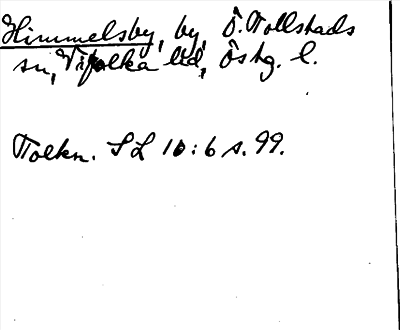 Himmelsby, by, Ö. Tollstads
sn, Vifolka hd, Östg. l.
Tolkn. SL 10:6 s. 99.